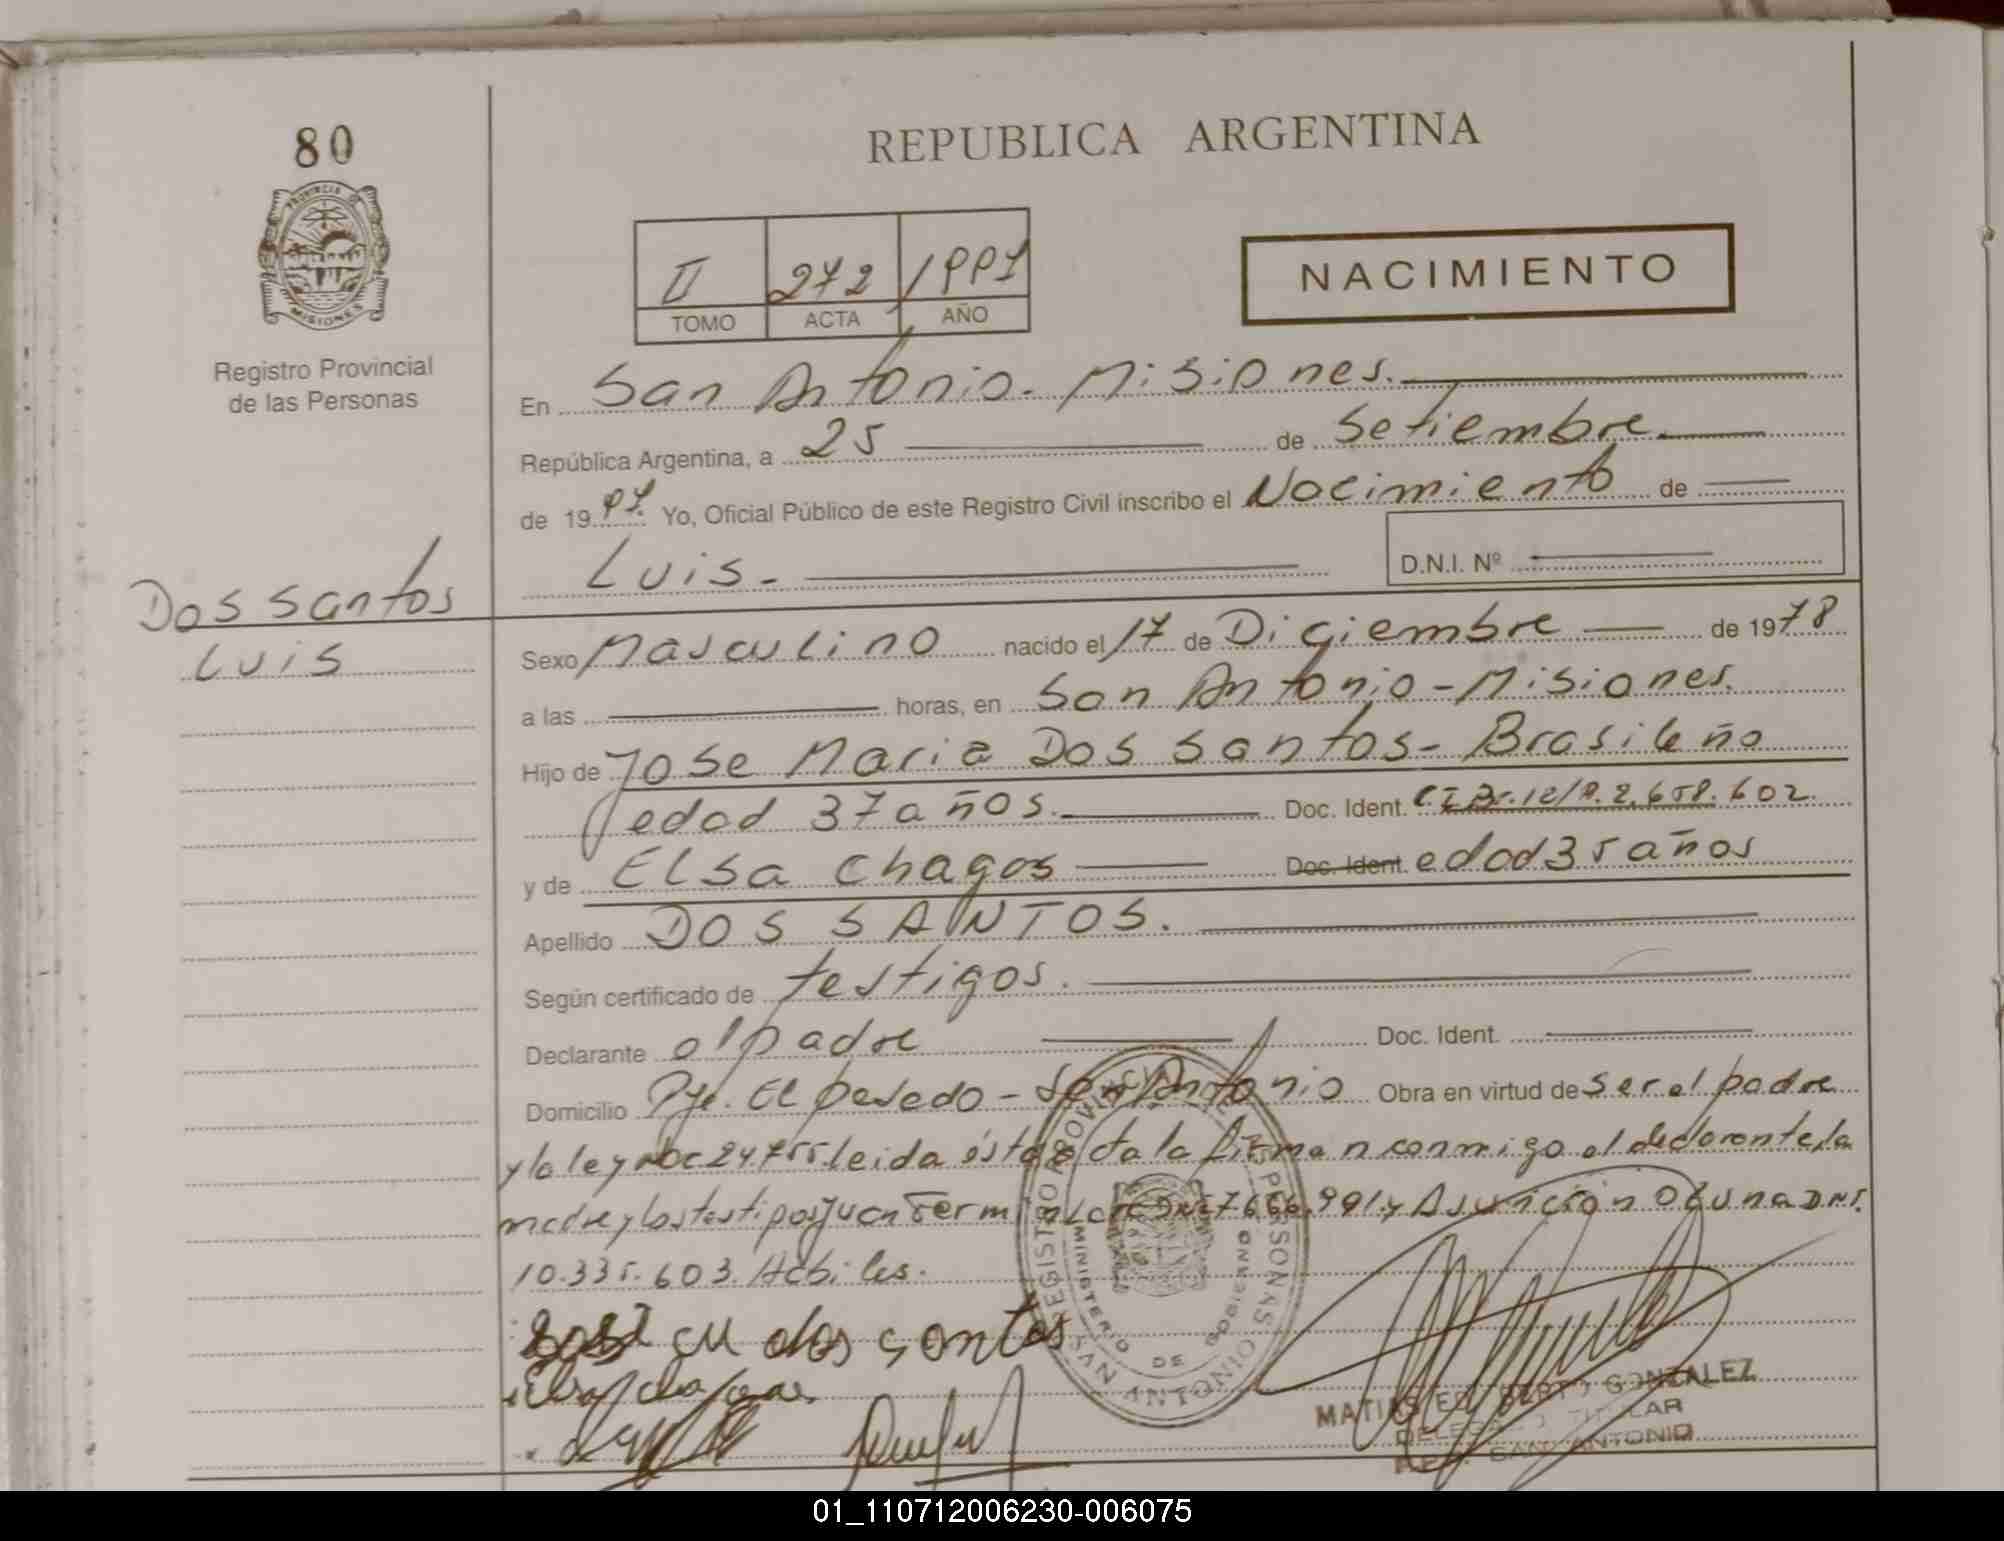 80
PROVINCIA DE
MISIONES
Registro Provincial
de las Personas
REPUBLICA ARGENTINA
II 272 1997
TOMO ACTA AÑO
NACIMIENTO
En San Antonio - Misiones.
República Argentina, a 25 de Setiembre
de 1997. Yo, Oficial Público de este Registro Civil inscribo el Nacimiento de
Luis - D.N.I. Nº
Dos Santos
Luis
Sexo Masculino nacido el 17 de Diciembre de 1978
a las horas, en San Antonio - Misiones.
Hijo de Jose Maria Dos Santos - Brasileño
edad 37 años. Doc. Ident. 602
y de Elsa Chagas Doc. Ident. edad 35 años
Apellido DOS SANTOS.
Según certificado de testigos.
Declarante el padre Doc. Ident.
Domicilio Pje. El - San Antonio Obra en virtud de ser el padre
y la ley 24.755. leida ésta acta la firman conmigo el declarante, la
madre y los testigos Juan Fermin 991 y Asuncion DNI.
10.335.603. Habiles.
dos santos
Elsa chagas
REGISTRO PROVINCIAL DE LAS PERSONAS
MINISTERIO DE GOBIERNO
SAN ANTONIO
MATIAS GONZALEZ
TITULAR
SAN ANTONIO
01_110712006230-006075